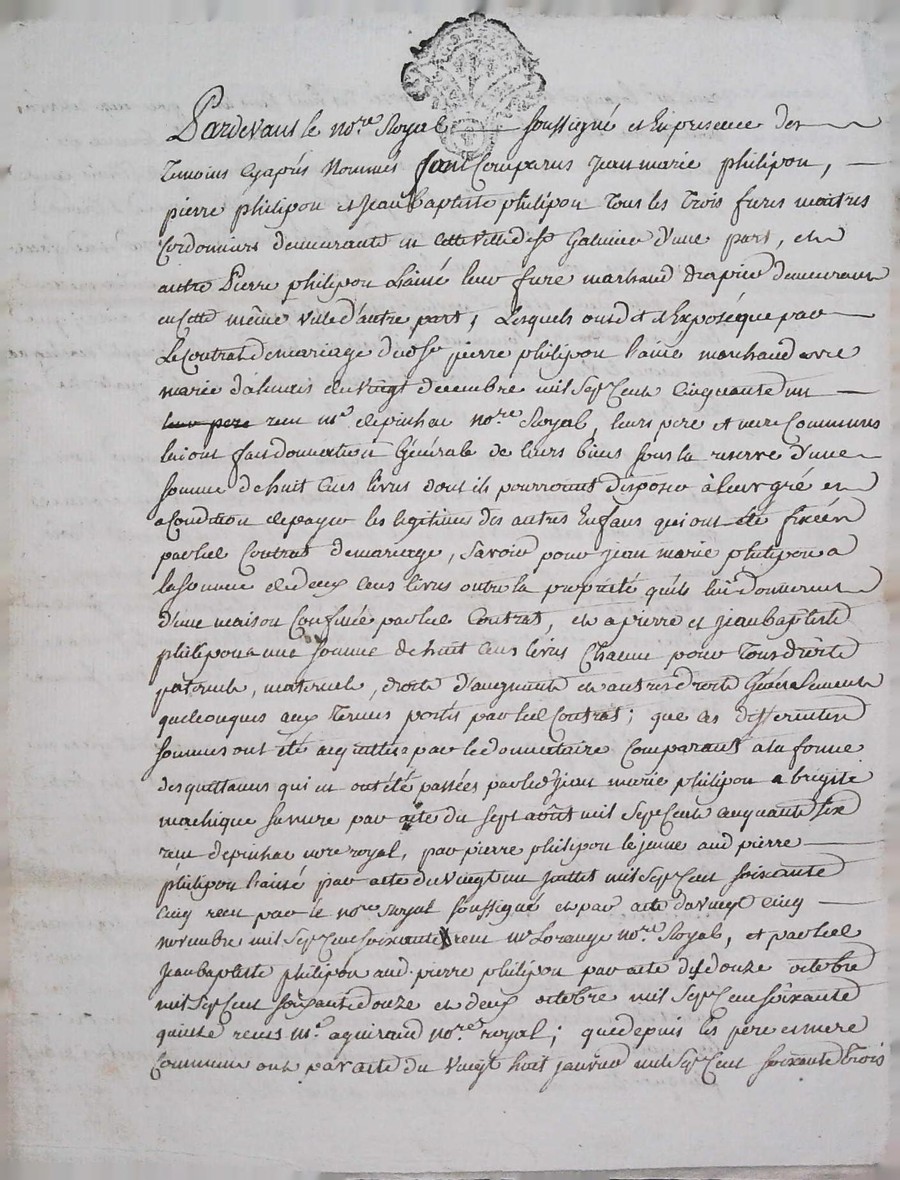 Pardevant le no.re Royal soussigné et En presence des
Temoins Cyaprés Nommés sont Comparus Jean marie philipon,
pierre philipon et Jean Baptiste philipon Tous les Trois freres maitres
Cordonniers demeurants en Cette Ville de st Galmier d'une part, et
autre Pierre philipon L'ainé leur frere marchand demeurant
en Cette même Ville d'autre part, Lesquels ont dit et Exposé que par
Le Contrat de mariage dud. sr pierre philipon l'ainé marchand avec
marie du Vingt decembre mil Sept Cent Cinquante un
leur pere recu m.e depinhac no.re Royal, leurs pere et mere Communs
lui ont fait donnation Générale de leurs biens sous la reserve d'une
somme de huit Cens livres dont ils pourroient disposer à leur gré et
a Condition de payer les legitimes des autres Enfans qui ont été fixées
par led. Contrat de mariage, Savoir pour jean marie philipon a
la somme de deux Cens livres outre la proprieté qu'ils lui donnerent
d'une maison Confinée par led. Contrat, et a pierre et jean baptiste
philipon a une somme de huit Cens livres Chacun pour Tous droits
paternels, maternels, droits d'augment et autres droits Généralement
quelconques aux Termes portés par led. Contrat; que Ces differentes
sommes ont été acquittées par le donnataire Comparant a la forme
des quittances qui en ont été passées par led. jean marie philipon a brigitte
machique sa mere par acte du sept août mil Sept Cent Cinquante six
recu depinhac no.re royal, par pierre philipon le jeune aud. pierre
philipon l'ainé par acte du Vingt un juillet mil Sept Cent soixante
Cinq recu par le no.re Royal soussigné et par acte du Vingt Cinq
novembre mil Sept Cent soixante recu m.e Lorange no.re Royal, et par led.
Jean baptiste philipon aud. pierre philipon par acte du douze octobre
mil Sept Cent soixante douze et deux octobre mil Sept Cent soixante
quinze recus m.e aguiraud no.re royal; que depuis les pere et mere
Communs ont par acte du Vingt huit janvier mil Sept Cent soixante Trois